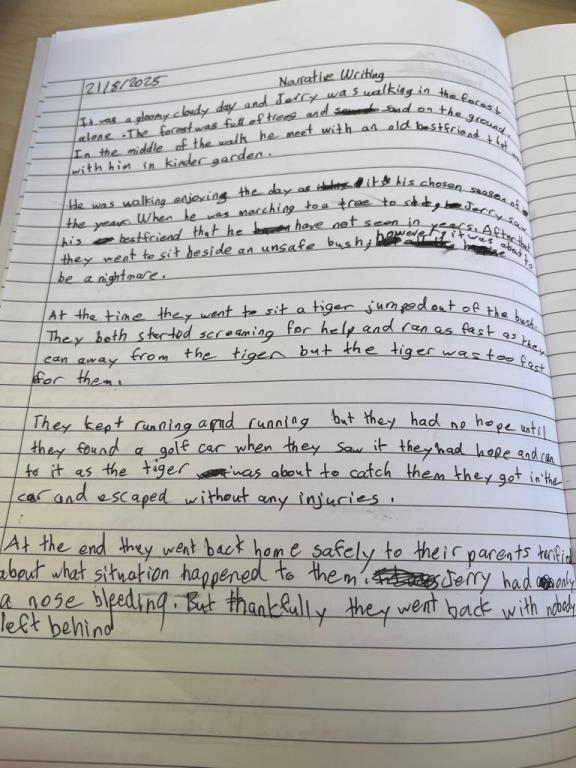 21/8/2025
Narrative Writing
It was a gloomy cloudy day and Jerry was walking in the forest
alone. The forest was full of trees and sand on the ground.
In the middle of the walk he meet with an old bestfriend
with him in kinder garden.
He was walking enjoying the day as it his chosen season of
the year. When he was marching to a tree to Jerry saw
his bestfriend that he have not seen in years. After that
they went to sit beside an unsafe bush, however, it was about to
be a nightmare.
At the time they went to sit a tiger jumped out of the bush.
They both started screaming for help and ran as fast as they
can away from the tiger but the tiger was too fast
for them.
They kept running and running but they had no hope until
they found a golf car when they saw it they had hope and ran
to it as the tiger was about to catch them they got in the
car and escaped without any injuries.
At the end they went back home safely to their parents
about what situation happened to them. Jerry had only
a nose bleeding. But thankfully they went back with nobody
left behind